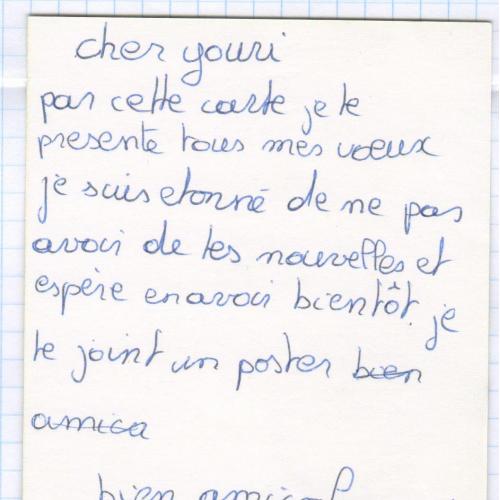 cher youri
par cette carte je te
presente tous mes voeux
je suis etonné de ne pas
avoir de tes nouvelles et
espère en avoir bientôt. je
te joint un poster bien
amica
bien amical